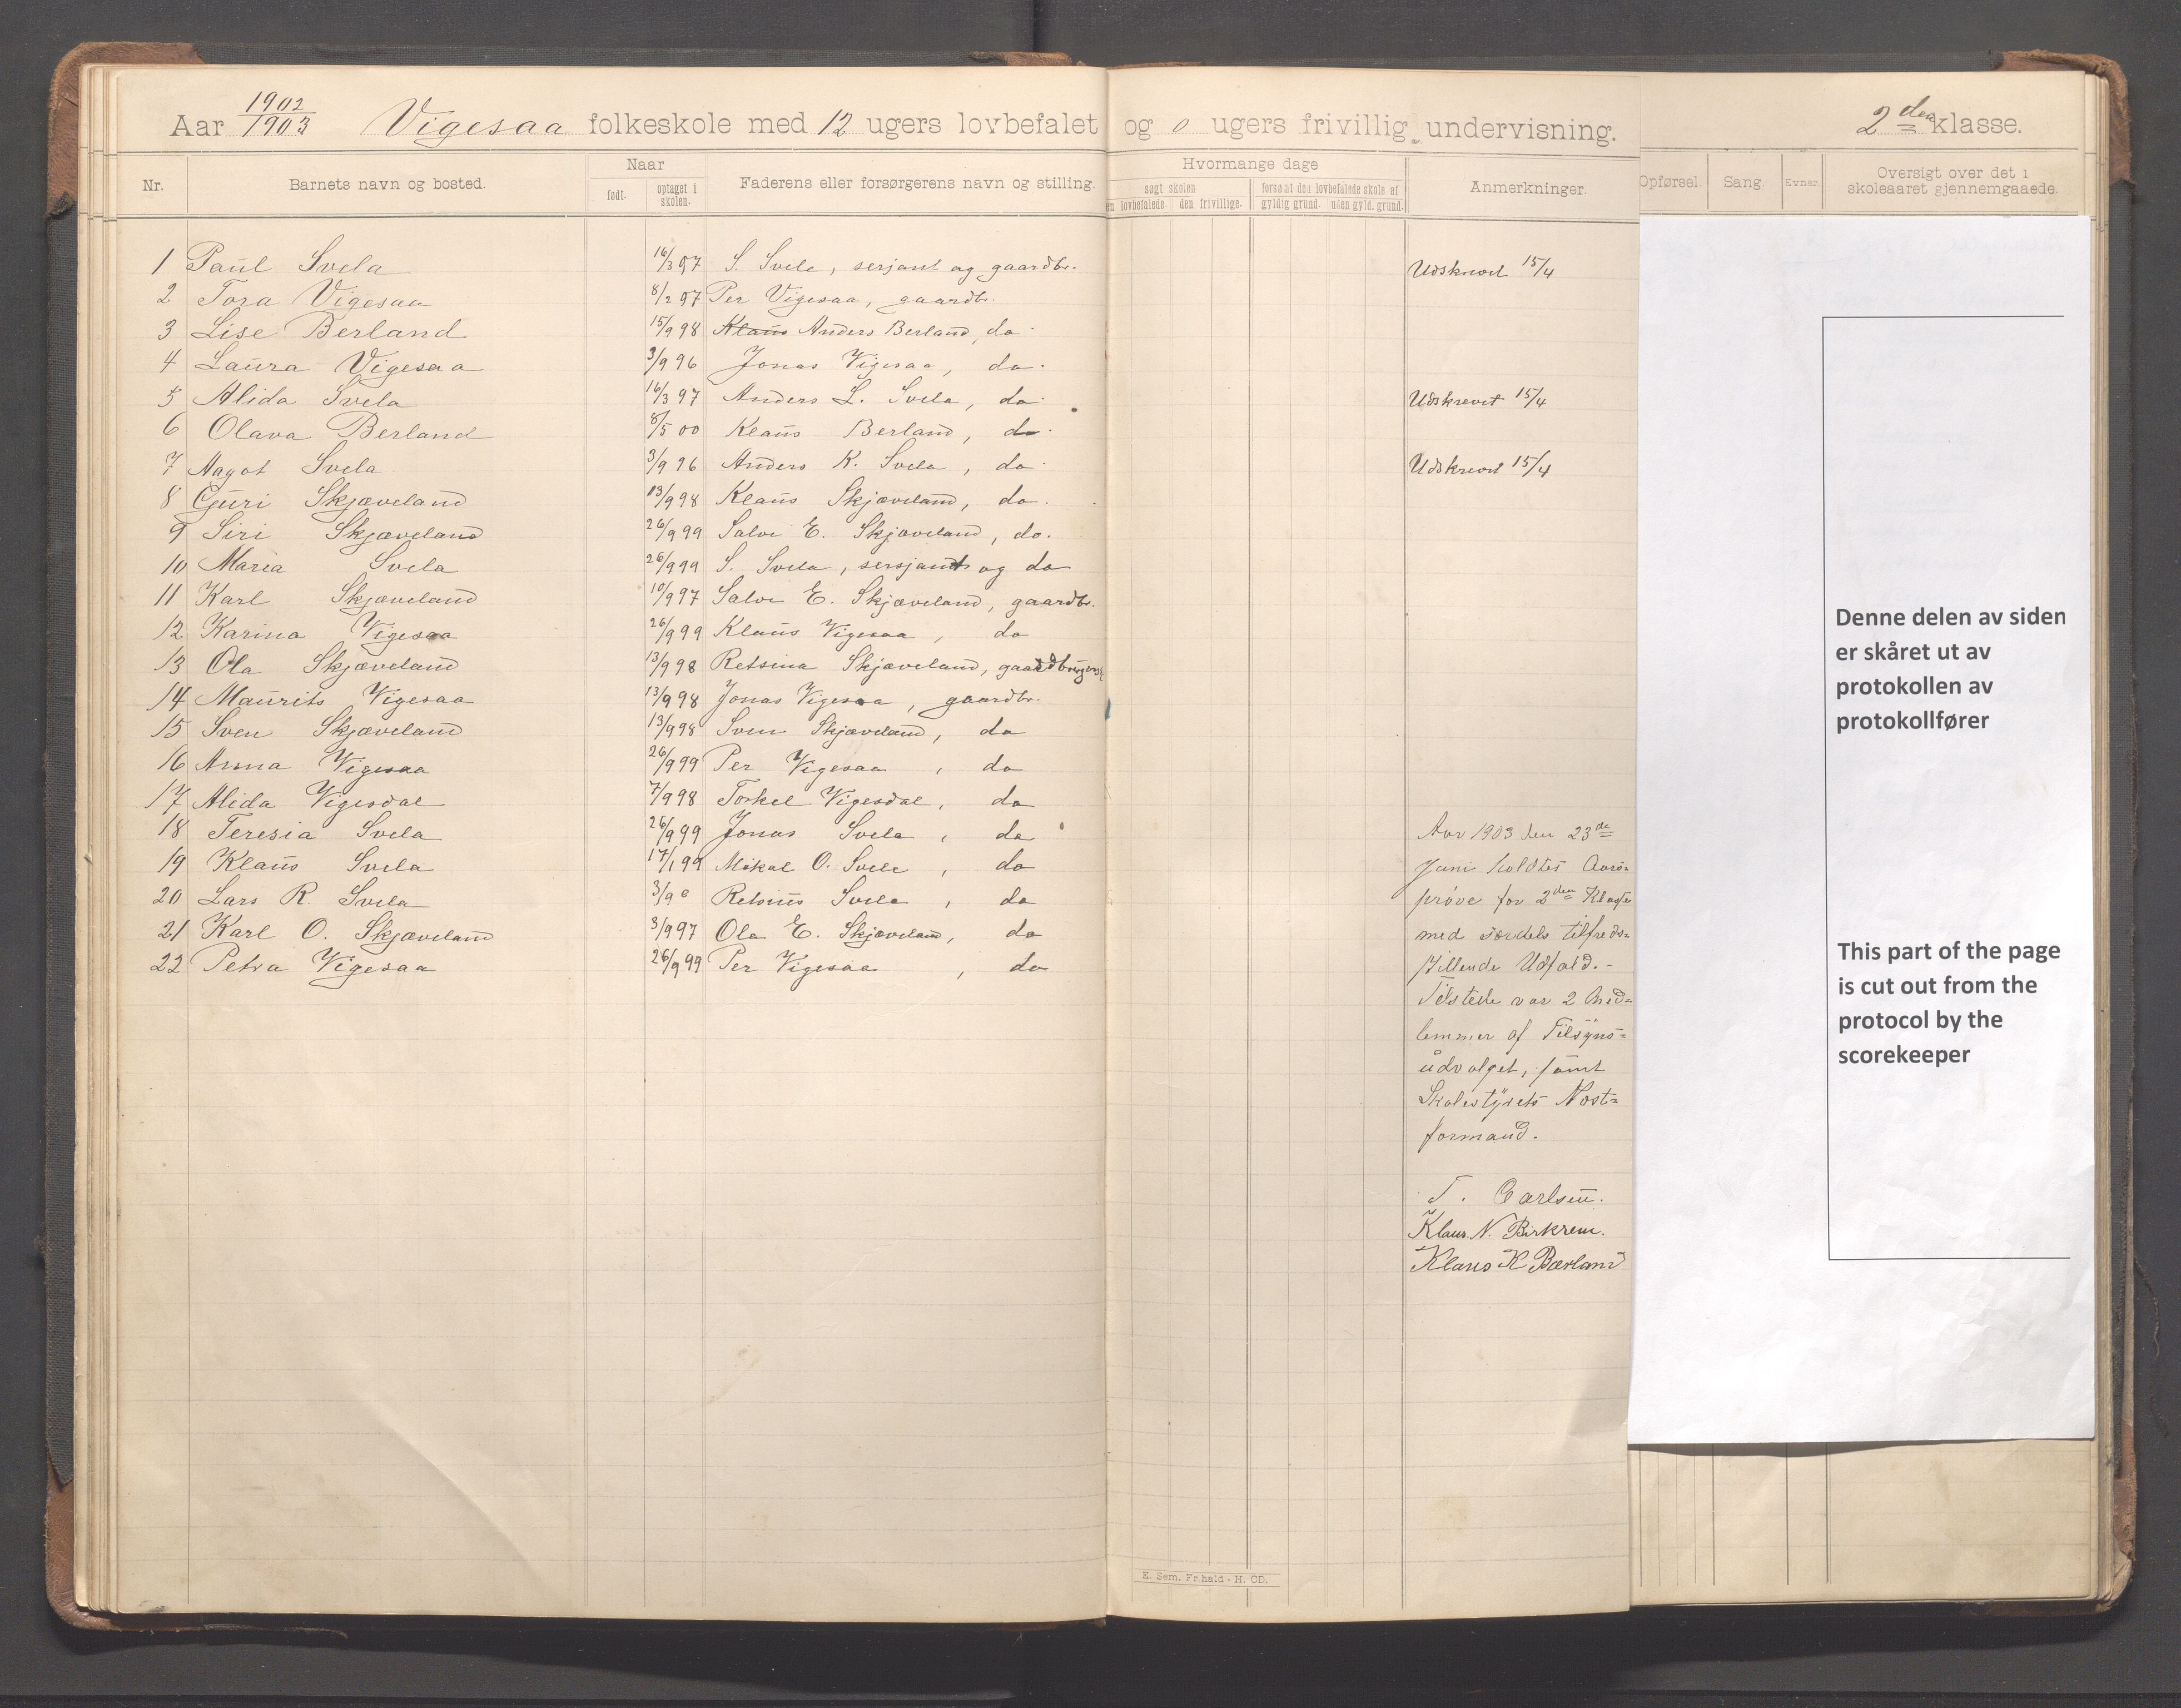 Aar 1902/1903 Vigesaa folkeskole med 12 ugers lovbefalet og 0 ugers frivillig undervisning. 2den klasse.
Nr. Barnets navn og bosted. Naar født. optaget i skolen. Faderens eller forsørgerens navn og stilling. Hvormange dage søgt skolen en lovbefalede. den frivillige. forsømt den lovbefalede skole af gyldig grund. uden gyld. grund. Anmerkninger. Opførsel. Sang. Evner. Oversigt over det i skoleaaret gjennemgaaede.
1 Paul Svela 16/3 97 S. Svela, serjant og gaardbr. Udskrevet 15/4
2 Tora Vigesaa 8/2 97 Per Vigesaa, gaardbr.
3 Lise Berland 15/9 98 Klaus Anders Berland, do.
4 Laura Vigesaa 3/9 96 Jonas Vigesaa, do.
5 Alida Svela 16/3 97 Anders L. Svela, do. Udskrevet 15/4
6 Olava Berland 8/5 00 Klaus Berland, do.
7 Aagot Svela 3/9 96 Anders K. Svela, do. Udskrevet 15/4
8 Guri Skjæveland 13/9 98 Klaus Skjæveland, do.
9 Siri Skjæveland 26/9 99 Salve E. Skjæveland, do.
10 Maria Svela 26/9 99 S. Svela, sersjant og do
11 Karl Skjæveland 10/9 97 Salve E. Skjæveland, gaardbr.
12 Karina Vigesaa 26/9 99 Klaus Vigesaa, do
13 Ola Skjæveland 13/9 98 Retsina Skjæveland,
14 Maurits Vigesaa 13/9 98 Jonas Vigesaa, gaardbr.
15 Sven Skjæveland 13/9 98 Sven Skjæveland, do
16 Anna Vigesaa 26/9 99 Per Vigesaa, do
17 Alida Vigesdal 7/9 98 Torkel Vigesdal, do
18 Teresia Svela 26/9 99 Jonas Svela, do
19 Klaus Svela 17/1 99 Mikal O. Svela, do
20 Lars R. Svela 3/9 Retsius Svela, do
21 Karl O. Skjæveland 3/9 97 Ola E. Skjæveland, do
22 Petra Vigesaa 26/9 99 Per Vigesaa, do
Aar 1903 den 23de
Juni holdtes
prøve for 2den Klasse
med særdels tilfreds-
stillende Udfald. -
Tilstede var 2 Med-
lemmer af Tilsyns-
udvalget, samt
Skolestyrets
formand.
T. Carlsen.
Klaus N. Birkrem.
Klaus K Bærland
E. Sem. Fr.hald - H. CD.
Denne delen av siden
er skåret ut av
protokollen av
protokollfører
This part of the page
is cut out from the
protocol by the
scorekeeper